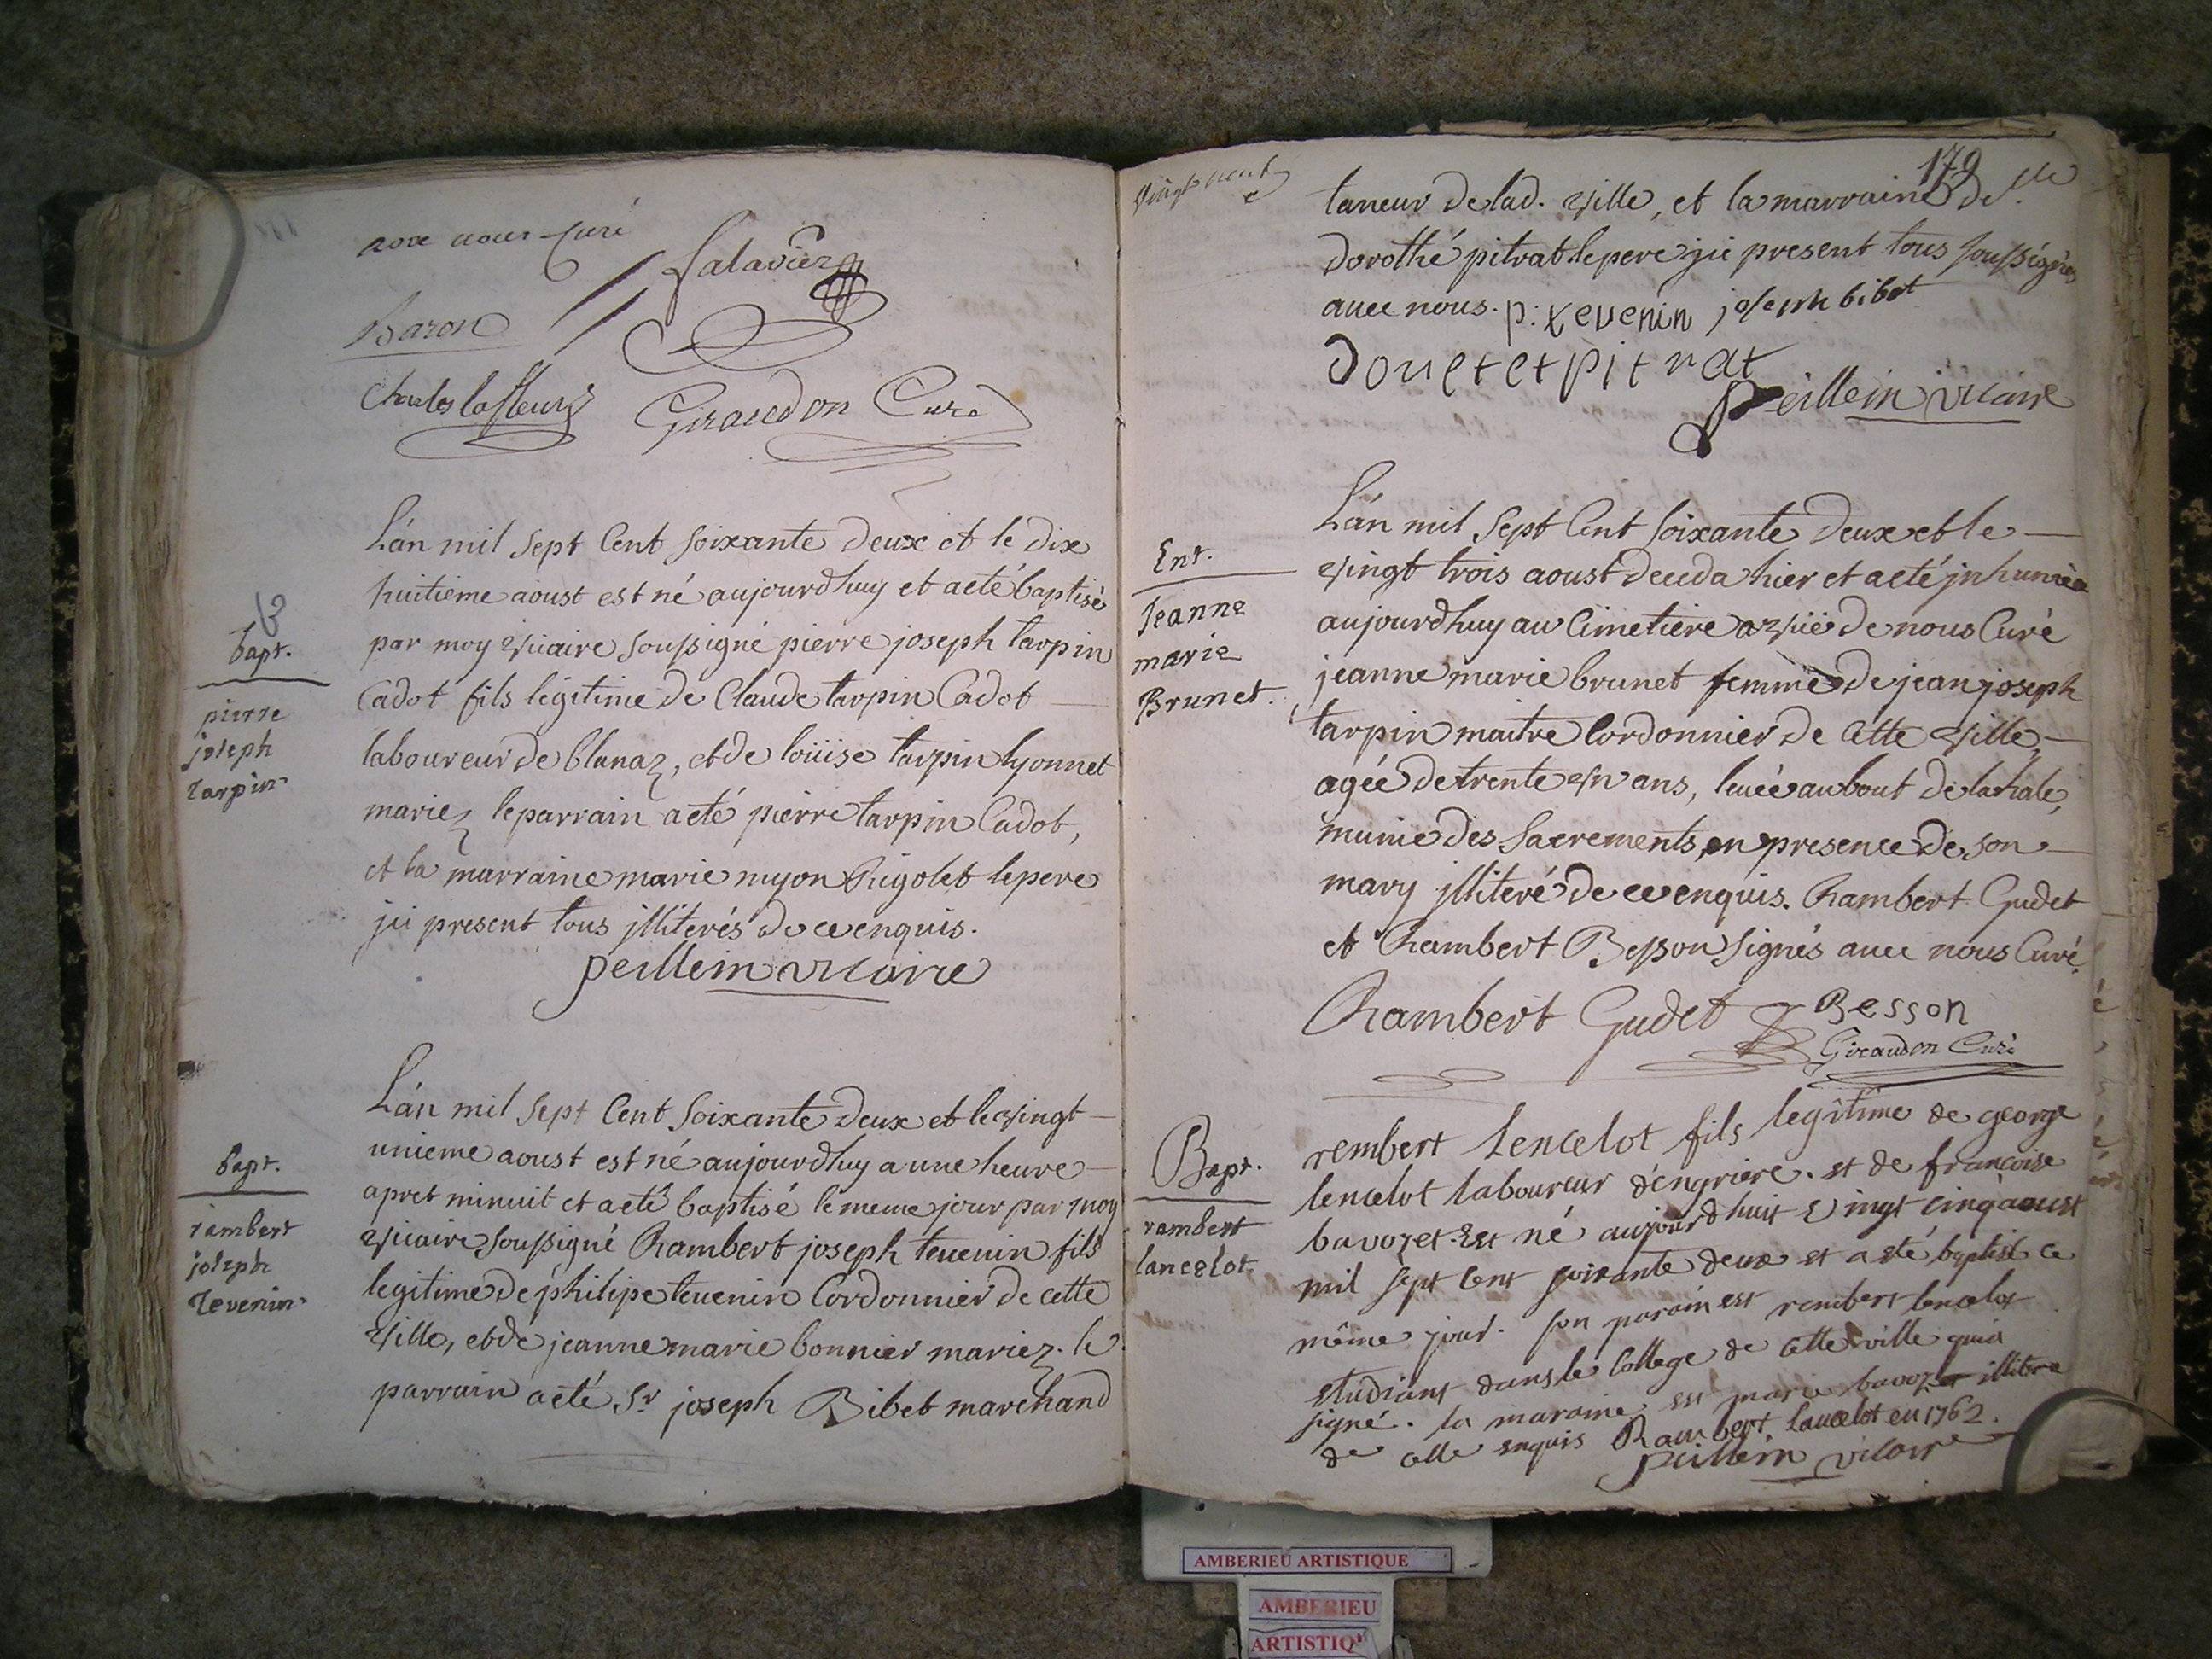 avec nous curé
Salavier
Baron
Charles lafleur
Giraudon Curé
L'án mil sept Cent soixante deux et le dix
huitieme aoust est né aujourdhuy et aeté baptisé
par moy vicaire soussigné pierre joseph tarpin
Cadot fils legitime de Claude tarpin Cadot
laboureur de blanaz, et de loüise tarpin lyonnet
mariez leparrain aeté pierre tarpin Cadot,
et la marraine marie myon Rigolet lepere
ici present tous jlliterés de ce enquis.
peillem vicaire
bapt.
pierre
joseph
tarpin
L'án mil sept Cent soixante deux et le vingt
unieme aoust est né aujourdhuy a une heure
apret minuit et aeté baptisé le meme jour par moy
vicaire soussigné Rambert joseph teuenin fils
legitime de philipe teuenin Cordonnier de cette
ville, et de jeanne marie bonnier mariez. le
parrain aeté Sr joseph Bibet marchand
bapt.
rambert
joseph
tevenin
Vingt neuf
179
taneur de lad. ville, et la marraine d.lle
dorothé pitrat le pere jci present tous soussignés
auec nous. p: tevenin joseph bibet
douet et pitrat
peillem vicaire
Ent.
Jeanne
marie
Brunet.
L'án mil Sept Cent soixante deux et le
vingt trois aoust deceda hier et aeté jnhumée
aujourdhuy au Cimetiere a viié de nous Curé
jeanne marie brunet femme de jean joseph
tarpin maitre Cordonnier de Cette ville,
agée de trente vn ans, leuée au bout de la hale,
munie des Sacrements, en presence de son
mary jlliteré de ce enquis. Rambert Gudet
et Rambert Besson signés auec nous Curé.
Rambert Gudet Besson
Giraudon Curé
Bapt.
rambert
lancelot
rembert Lencelot fils legitime de george
lencelot laboureur d'engriere. et de francoise
bavozet. Est né aujourdhuit vingt cinq aoust
mil sept cent soixante deux et a eté baptisé ce
même jour. son parain est rembert lencelot
etudiant dans le College de cette ville qui a
signé. la maraine est marie bavozet illitere
de elle enquis Rambert Lancelot en 1762.
peillem vicaire
AMBERIEU ARTISTIQUE
AMBERIEU
ARTISTIQ